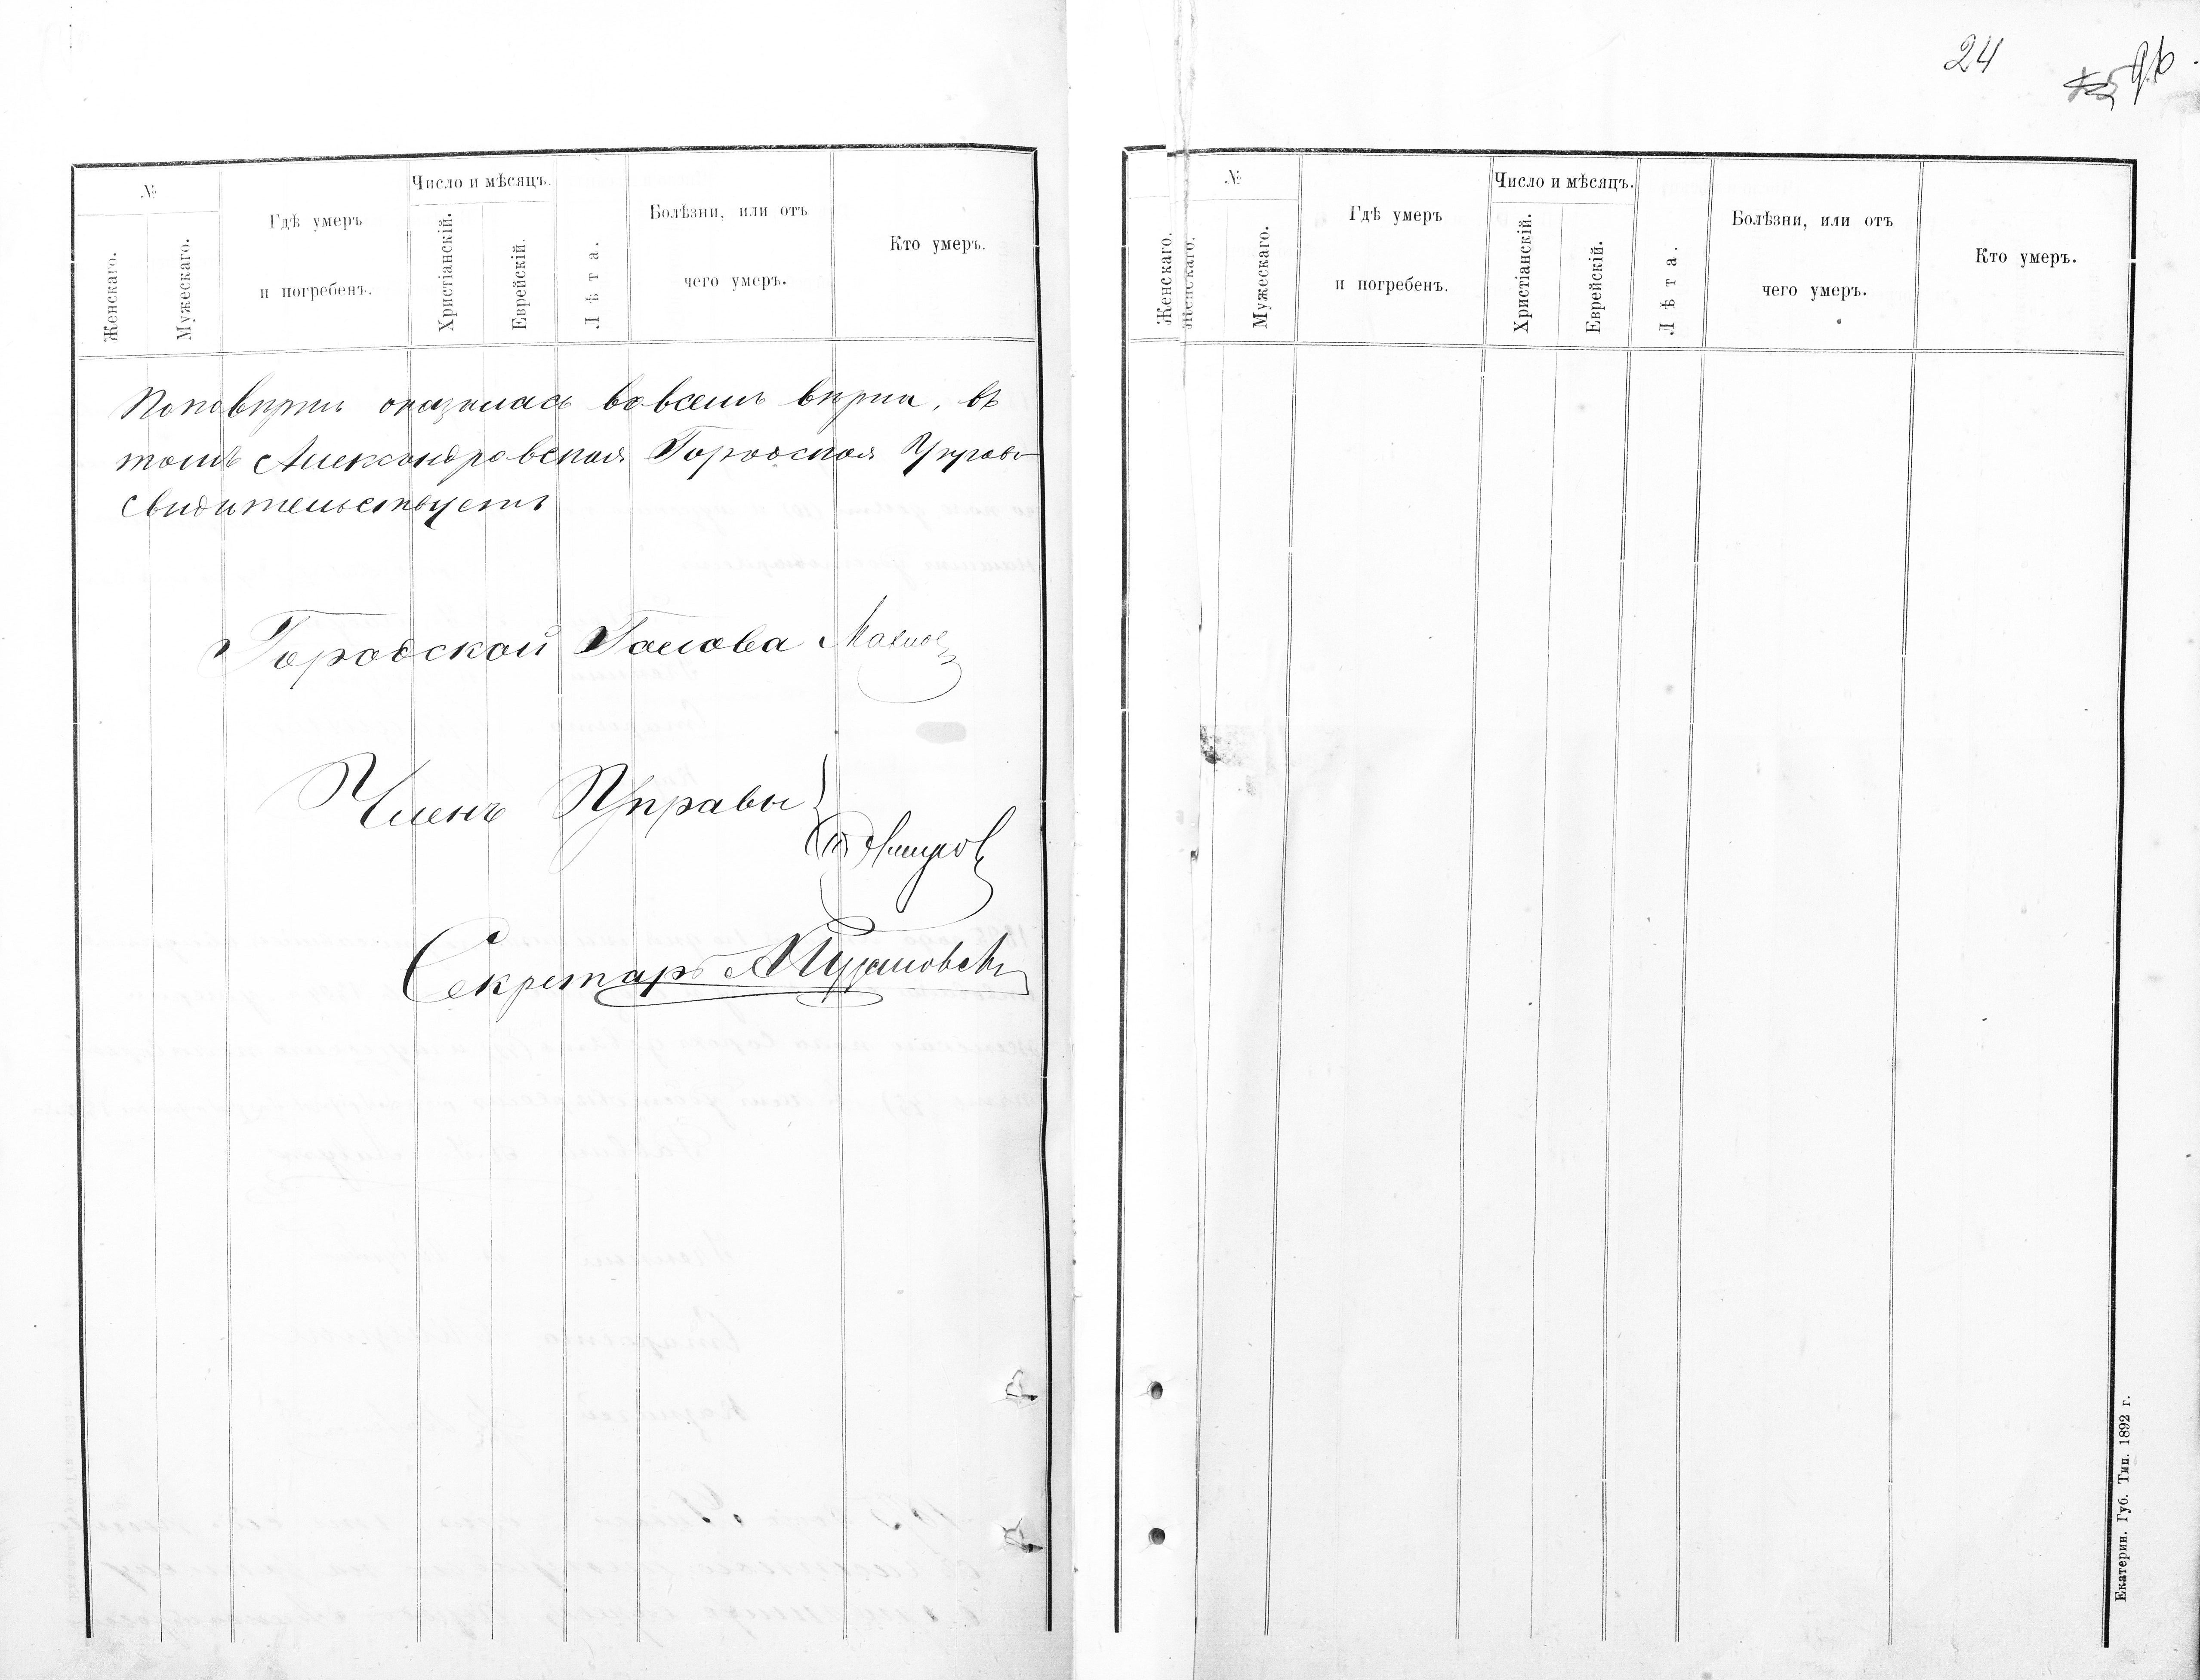 №
Женскаго.
Мужескаго.
Гдѣ умеръ
и погребенъ.
Число и мѣсяцъ.
Христіанскій.
Еврейскій.
Лѣта.
Болѣзни, или отъ
чего умеръ.
Кто умеръ.
оказалась во всемъ вѣрна, въ
томъ Александровская Городская Управа
свидѣтельствуетъ
Городской Голова
Членъ Управы
Секретарь
24
№
Женскаго.
Женскаго.
Мужескаго.
Гдѣ умеръ
и погребенъ.
Число и мѣсяцъ.
Христіанскій.
Еврейскій.
Лѣта.
Болѣзни, или отъ
чего умеръ.
Кто умеръ.
Екатерин. Губ. Тип. 1892 г.